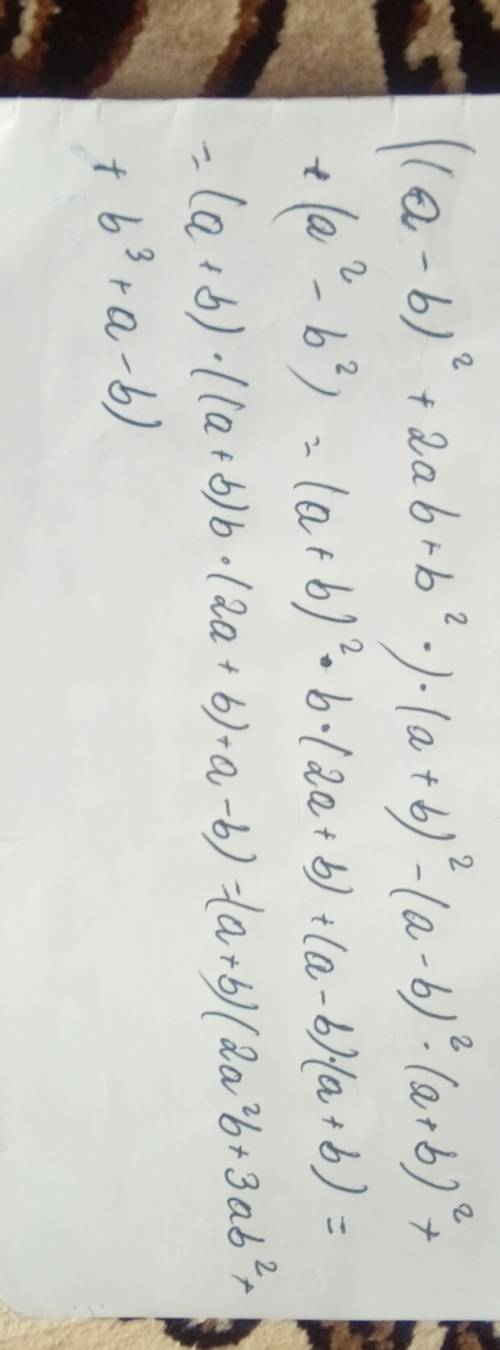 ((a-b)² + 2ab + b²·)·(a+b)² - (a-b)²·(a+b)² +
+ (a² - b²) = (a+b)²·b·(2a+b) + (a-b)·(a+b) =
= (a+b)·((a+b)b·(2a+b)+a-b) = (a+b)(2a²b+3ab²+
+ b³ + a - b)